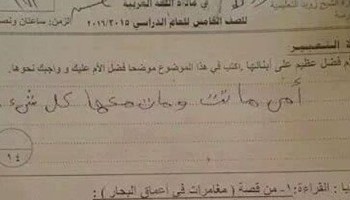 مادة اللغة العربية
للصف الخامس للعام الدراسي ٢٠١٦/٢٠١٥ الزمن: ساعتان ونصف
التعبير
فضل عظيم على أبنائها، اكتب في هذا الموضوع موضحا فضل الأم عليك و واجبك نحوها.
أمي ماتت ومات معها كل شيء
١٤
القراءة: ١- من قصة ( مغامرات في أعماق البحار ) :